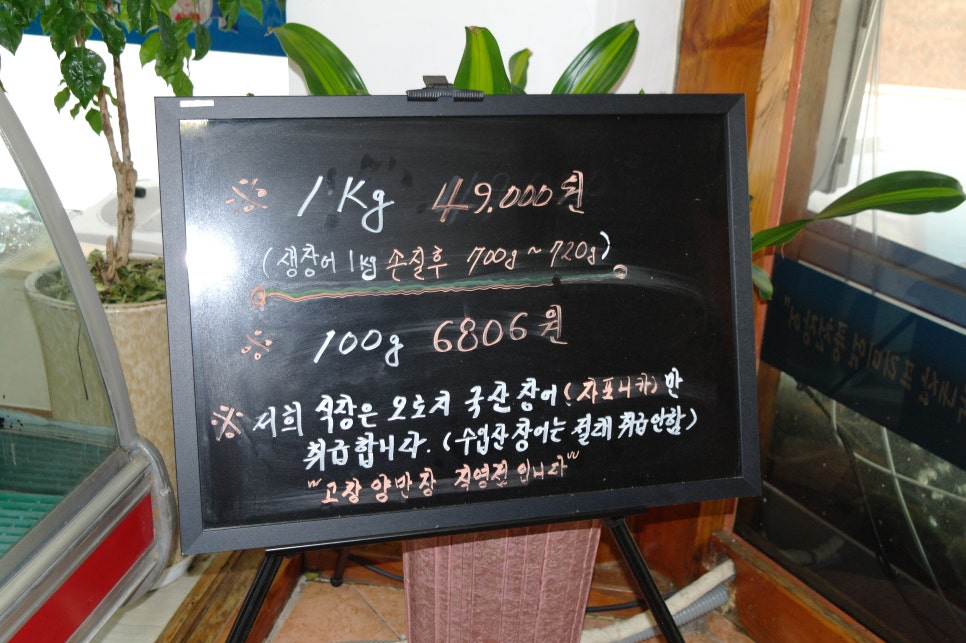 ※ 1Kg 49.000원
(생장어 1kg 손질후 700g ~ 720g)
※ 100g 6806원
※ 저희 식장은 오로지 국산 장어(자포니카)만
취급합니다. (수입산 장어는 절대 취급안함)
"고창 양만장 직영점 입니다"
국내산 프리미엄 풍천장어